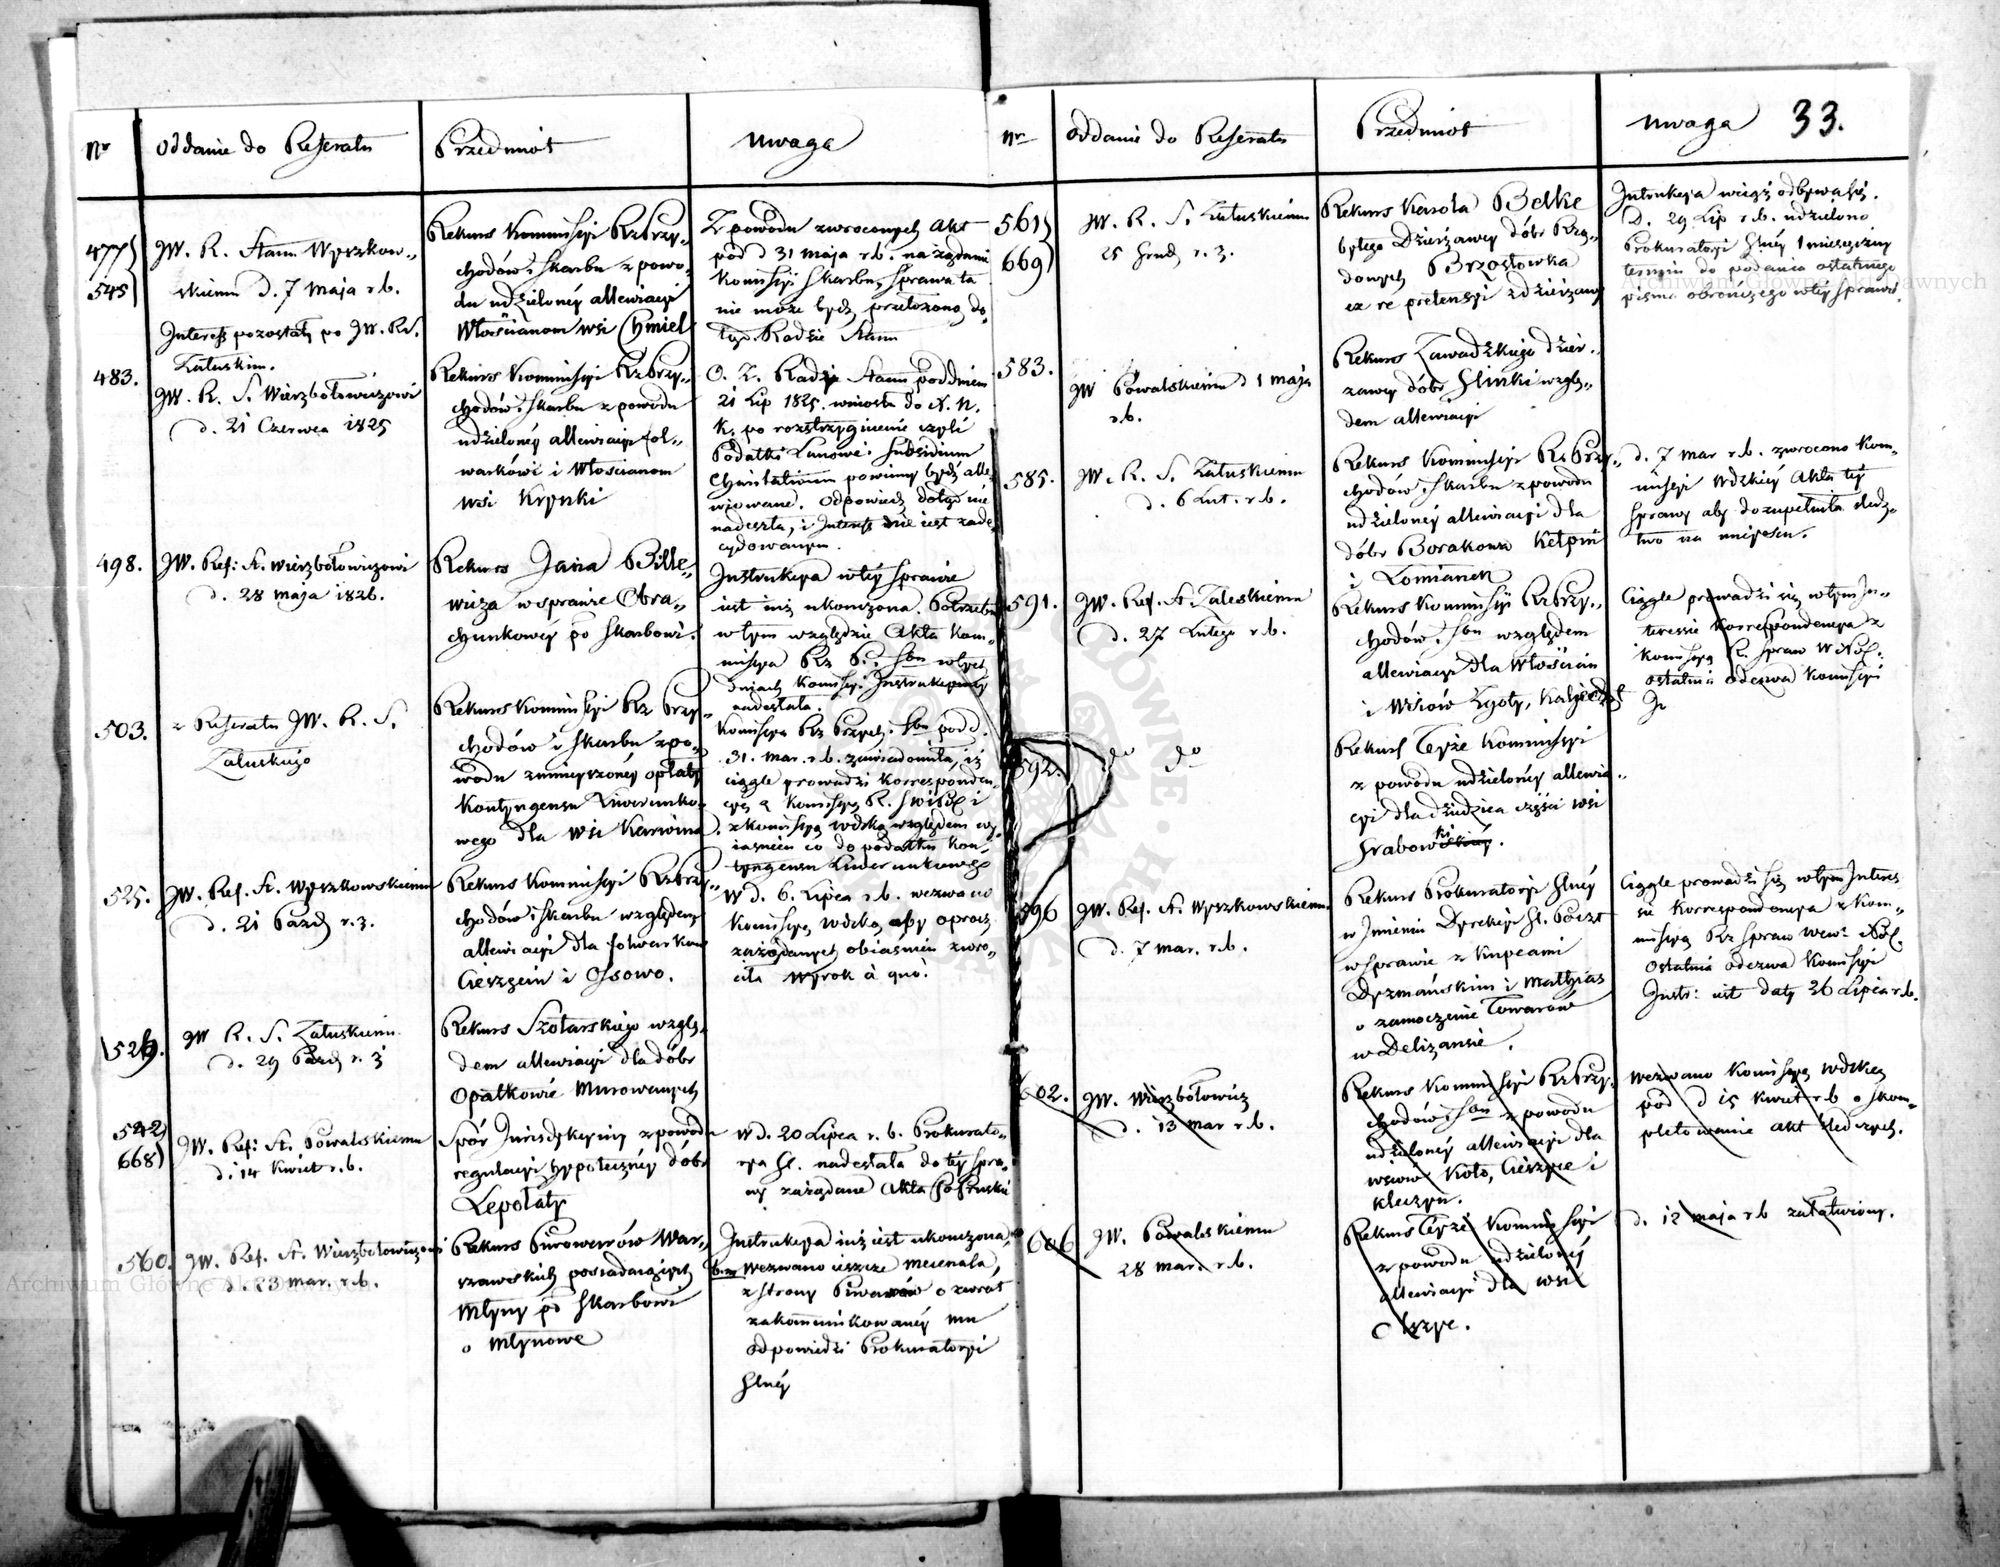 Nr
Oddanie do Referatu
Przedmiot
Uwaga
477)
545)
JW. R. Stanu Wyszkow-
skiemu d. 7 Maja r b.
Interess pozostały po JW. R.S.
Załuskim.
Rekurs Kommissyi Rz Przy-
chodów i Skarbu z powo-
du udzieloney allewiacyi
Włościanom wsi Chmiel
Z powodu zwroconych akt
pod d 31 maja r b. na żądanie
Kommissyi Skarbu, sprawa ta
nie może bydź przełożoną do-
tąd Radzie Stanu
483.
JW. R. S. Wierzbołowiczowi
d. 21 Czerwca 1825
Rekurs Kommissyi Rz Przy-
chodów i Skarbu z powodu
udzieloney allewiacyi fol-
warkowi i Włościanom
wsi Krynki
O. Z. Rady Stanu pod dniem
21 Lip 1825. wniosła do N. N.
K. po rozstrzygnienie czyli
Podatki Łanowe i Subsidium
Charitativum powinny bydź alle-
wiowane. Odpowiedź dotąd nie
nadeszła, i Interess nie iest zade-
cydowanym.
498.
JW. Ref: St. Wierzbołowiczowi
d. 28 maja 1826.
Rekurs Jana Bille-
wicza w sprawie Obra-
chunkowey po Skarbowi.
Instrukcya w tey sprawie
iest już ukończona. Potrzebne
w tym względzie Akta Kom-
missya Rz P. i Sbu w tych
dniach Komissyi Instrukcyiney
nadesłała.
503.
z Referatu JW. R. S.
Załuskiego
Rekurs Kommissyi Rz Przy-
chodów i Skarbu z po-
wodu zmnieyszoney opłaty
Kontyngensu Liwerunko-
wego dla wsi Karwina
Komissya Rz Przych. i Sbu pod d.
31. mar. r. b. zawiadomiła, iż
ciągle prowadzi korresponden-
cyę z Komissyą R. S W i Pol i
z Komissyą Wdzką względem wy-
iasnień co do podatku Kon-
tyngensu Liwerunkowego
525.
JW. Ref. St. Wyszkowskiemu
d. 21 Pazd r. z.
Rekurs Kommissyi Rz Przy-
chodów i Skarbu względem
allewiacyi dla folwarków
Cieszęcin i Osowo.
W d. 6. Lipca r. b. wezwano
Komissyą Wdzką aby oprócz
zażądanych obiaśnień zwró-
ciła Wyrok à quo.
526.
JW R. S. Załuskiemu
d. 29 Pazd r. z
Rekurs Szotarskiego wzglę-
dem allewiacyi dla dóbr
Opatkowic Murowanych
542)
668)
JW. Ref: St. Powalskiemu
d. 14 Kwiet r. b.
Spór Jurisdykcyiny z powodu
regulacyi hypoteczney dóbr
Lepołaty
W d. 20 Lipca r. b. Prokurato-
rya Gl. nadesłała do tey spra-
wy zażądane Akta Po Pruskie
560.
JW. Ref. St. Wierzbołowiczowi
d. 23 mar. r. b.
Rekurs Piwowarów War-
szawskich posiadających
Młyny po Skarbowi
o Młynowe
Instrukcya już iest ukończona,
wezwano ieszcze mecenasa,
z strony Piwowarów o zwrot
zakommunikowaney mu
odpowiedzi Prokuratoryi
Glney
Nr
Oddanie do Referatu
Przedmiot
Uwaga
33.
561)
669)
JW. R. S. Załuskiemu
25 Grud r. z.
Rekurs Karola Belke
byłego Dzierżawcy dóbr Rzą-
dowych Brzostowka
ex re pretensyi z dzierżawy
Instrukcya wciąż odbywa się.
D. 29 Lip r. b. udzielono
Prokuratoryi Glney 1 miesięczny
termin do podania ostatniego
pisma obronczego w tey sprawie.
583.
JW Powalskiemu d 1 maja
r. b.
Rekurs Zawadzkiego dzier-
zawcy dóbr Glinki wzglę-
dem allewiacyi
585.
JW. R. S. Załuskiemu
d. 6 Lut. r. b.
Rekurs Kommissyi Rz Przy-
chodów i Skarbu z powodu
udzieloney allewiacyi dla
dóbr Borakowa Kełpin
i Łomianek
d. 7 mar r. b. zwrócono Kom-
missyi Wdzkiey Akta tey
sprawy aby dozupełniła śledz-
two na mieyscu.
591.
JW. Ref. St. Załuskiemu
d. 27 Lutego r. b.
Rekurs Kommissyi Rz Przy-
chodów i Sbu względem
allewiacyi dla Włościan
Ciągle prowadzi się w tym In-
teressie Korrespondencya z
Komissyą R. Spraw W i Pol.
ostatnia odezwa Komissyi
592.
do do
Rekurs Teyże Kommissyi
z powodu udzieloney allewia-
cyi dla dziedzica części wsi
596
JW. Ref. St. Wyszkowskiemu
d. 7 mar. r. b.
Rekurs Prokuratoryi Glney
w Imieniu Dyrekcyi Gl. Poczt
w sprawie z Kupcami
Dyzmańskim i Mathias
o zamoczenie Towarów
w Deliżansie.
Ciągle prowadzi się w tym Interes-
sie Korrespondencya z Kom-
missyą Rz Spraw Wew: i Pol.
ostatnia odezwa Komissyi
Instr: iest daty 26 Lipca r. b.
602.
JW. Wierzbołowicz
d. 13 mar r. b.
Rekurs Kommissyi Rz Przy-
chodów i Sbu z powodu
udzieloney allewiacyi dla
wsiów Koło, Cieszyce i
Kleczyn.
Wezwano Komissyą Wdzką
pod d 15 Kwiet r b o skom-
pletowanie akt śledczych.
606
JW. Powalskiemu
28 mar. r. b.
Rekurs Teyże Kommissyi
z powodu udzieloney
allewiacyi dla wsi
d. 12 maja r b załatwiony.
Archiwum Główne Akt Dawnych
Archiwum Główne Akt Dawnych